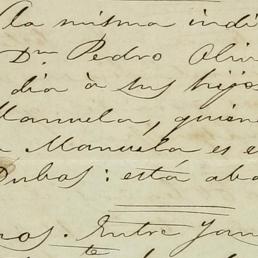 la misma indi
Dn Pedro Oliv
dia à sus hijos
Manuela, quien
a Manuela es e
Dubas: está aba
nos. Entre Jam